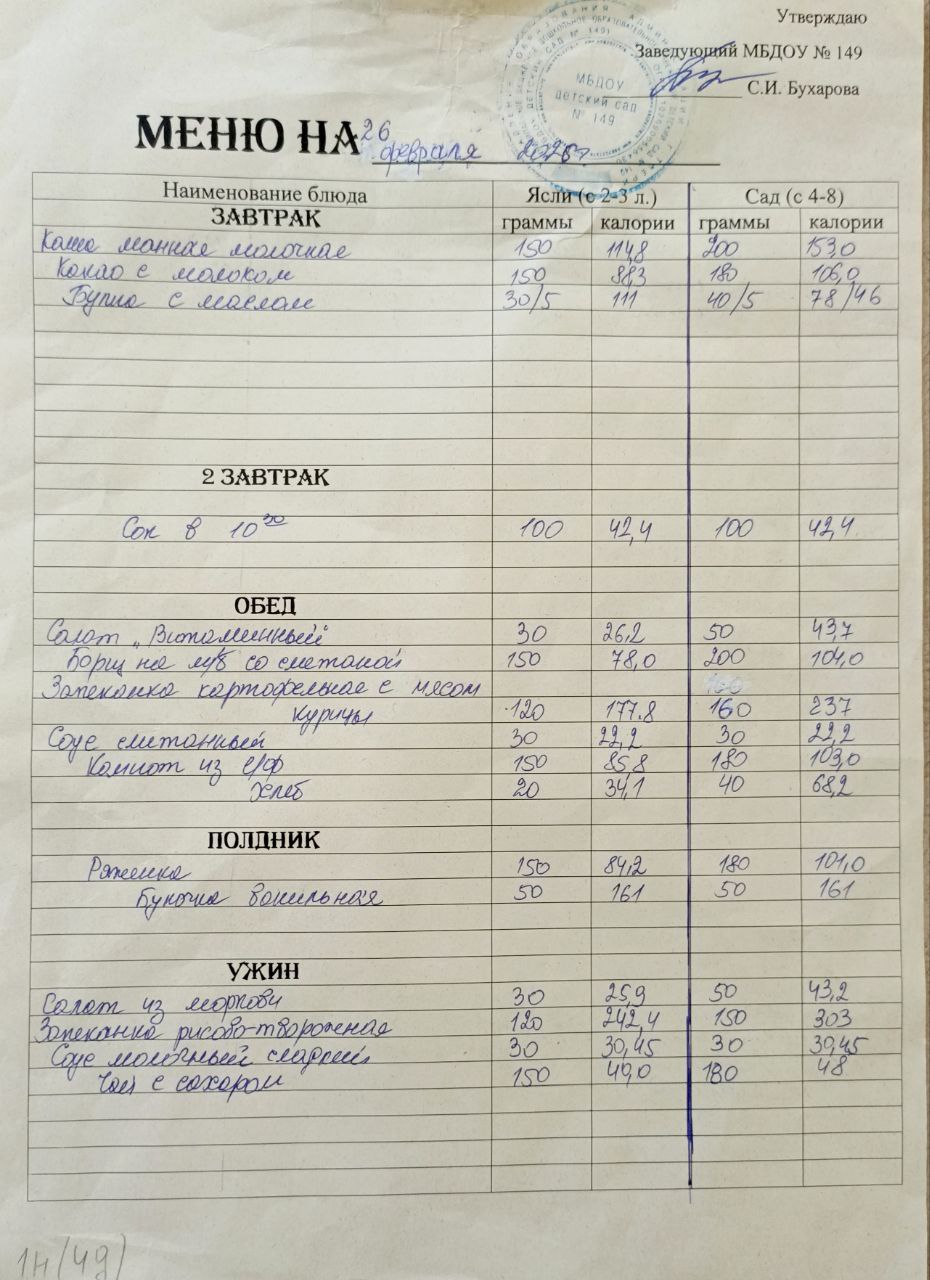 Утверждаю
Заведующий МБДОУ № 149
С.И. Бухарова
МБДОУ
детский сад
№ 149
МЕНЮ НА 26 февраля
Наименование блюда Ясли (с 2-3 л.) Сад (с 4-8)
ЗАВТРАК граммы калории граммы калории
Каша манная молочная 150 114,8 200 153,0
Какао с молоком 150 88,3 180 106,0
Булка с маслом 30/5 111 40/5 78/46
2 ЗАВТРАК
Сок в 10 30 100 42,4 100 42,4
ОБЕД
Салат „Витаминный" 30 26,2 50 43,7
Борщ на м/б со сметаной 150 78,0 200 104,0
Запеканка картофельная с мясом
курицы 120 177.8 160 237
Соус сметанный 30 22,2 30 22,2
Компот из с/ф 150 85,8 180 103,0
Хлеб 20 34,1 40 68,2
ПОЛДНИК
Ряженка 150 84,2 180 101,0
Булочка ванильная 50 161 50 161
УЖИН
Салат из моркови 30 25,9 50 43,2
Запеканка рисово-творожная 120 242,4 150 303
Соус молочный сладкий 30 30,45 30 30,45
Чай с сахаром 150 40,0 180 48
1н/49)